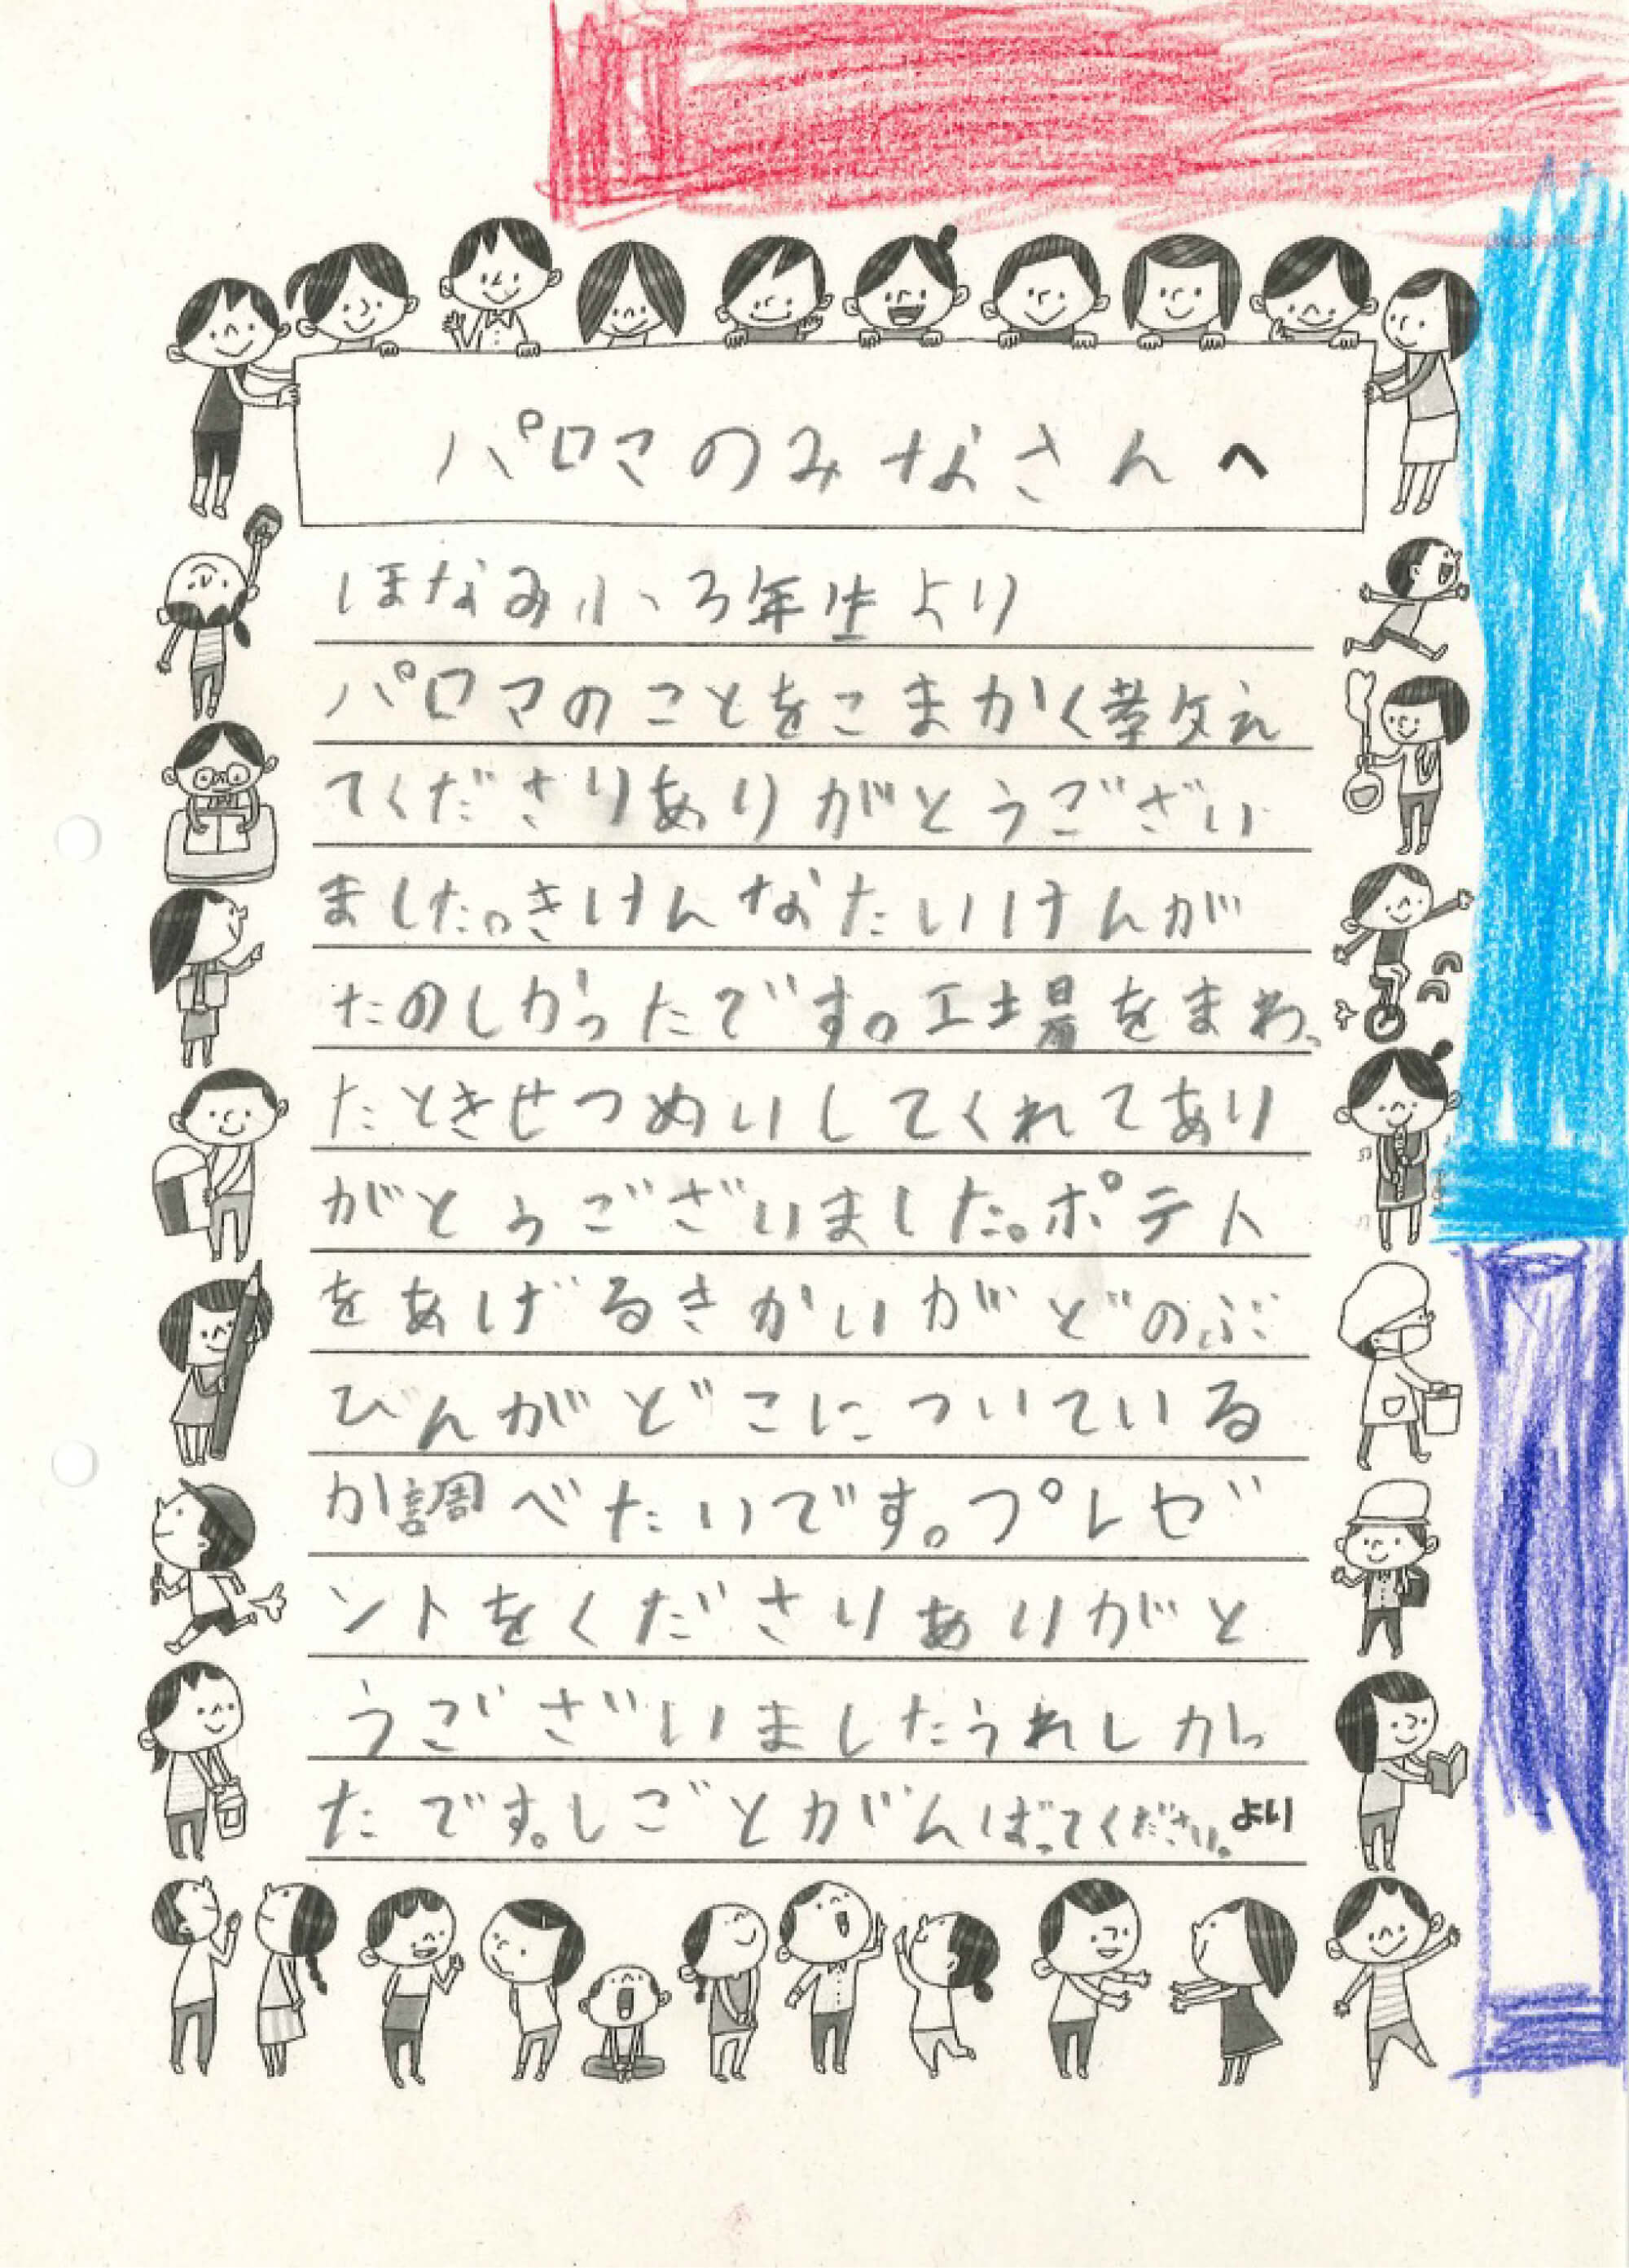 パロマのみなさんへ
ほなみ小3年生より
パロマのことをこまかく教え
てくださりありがとうござい
ました。きけんなたいけんが
たのしかったです。工場をまわっ
たときせつめいしてくれてあり
がとうございました。ポテト
をあげるきかいがどのぶ
ひんがどこについている
か調べたいです。プレゼ
ントをくださりありがと
うございましたうれしかっ
たです。しごとがんばってください。より